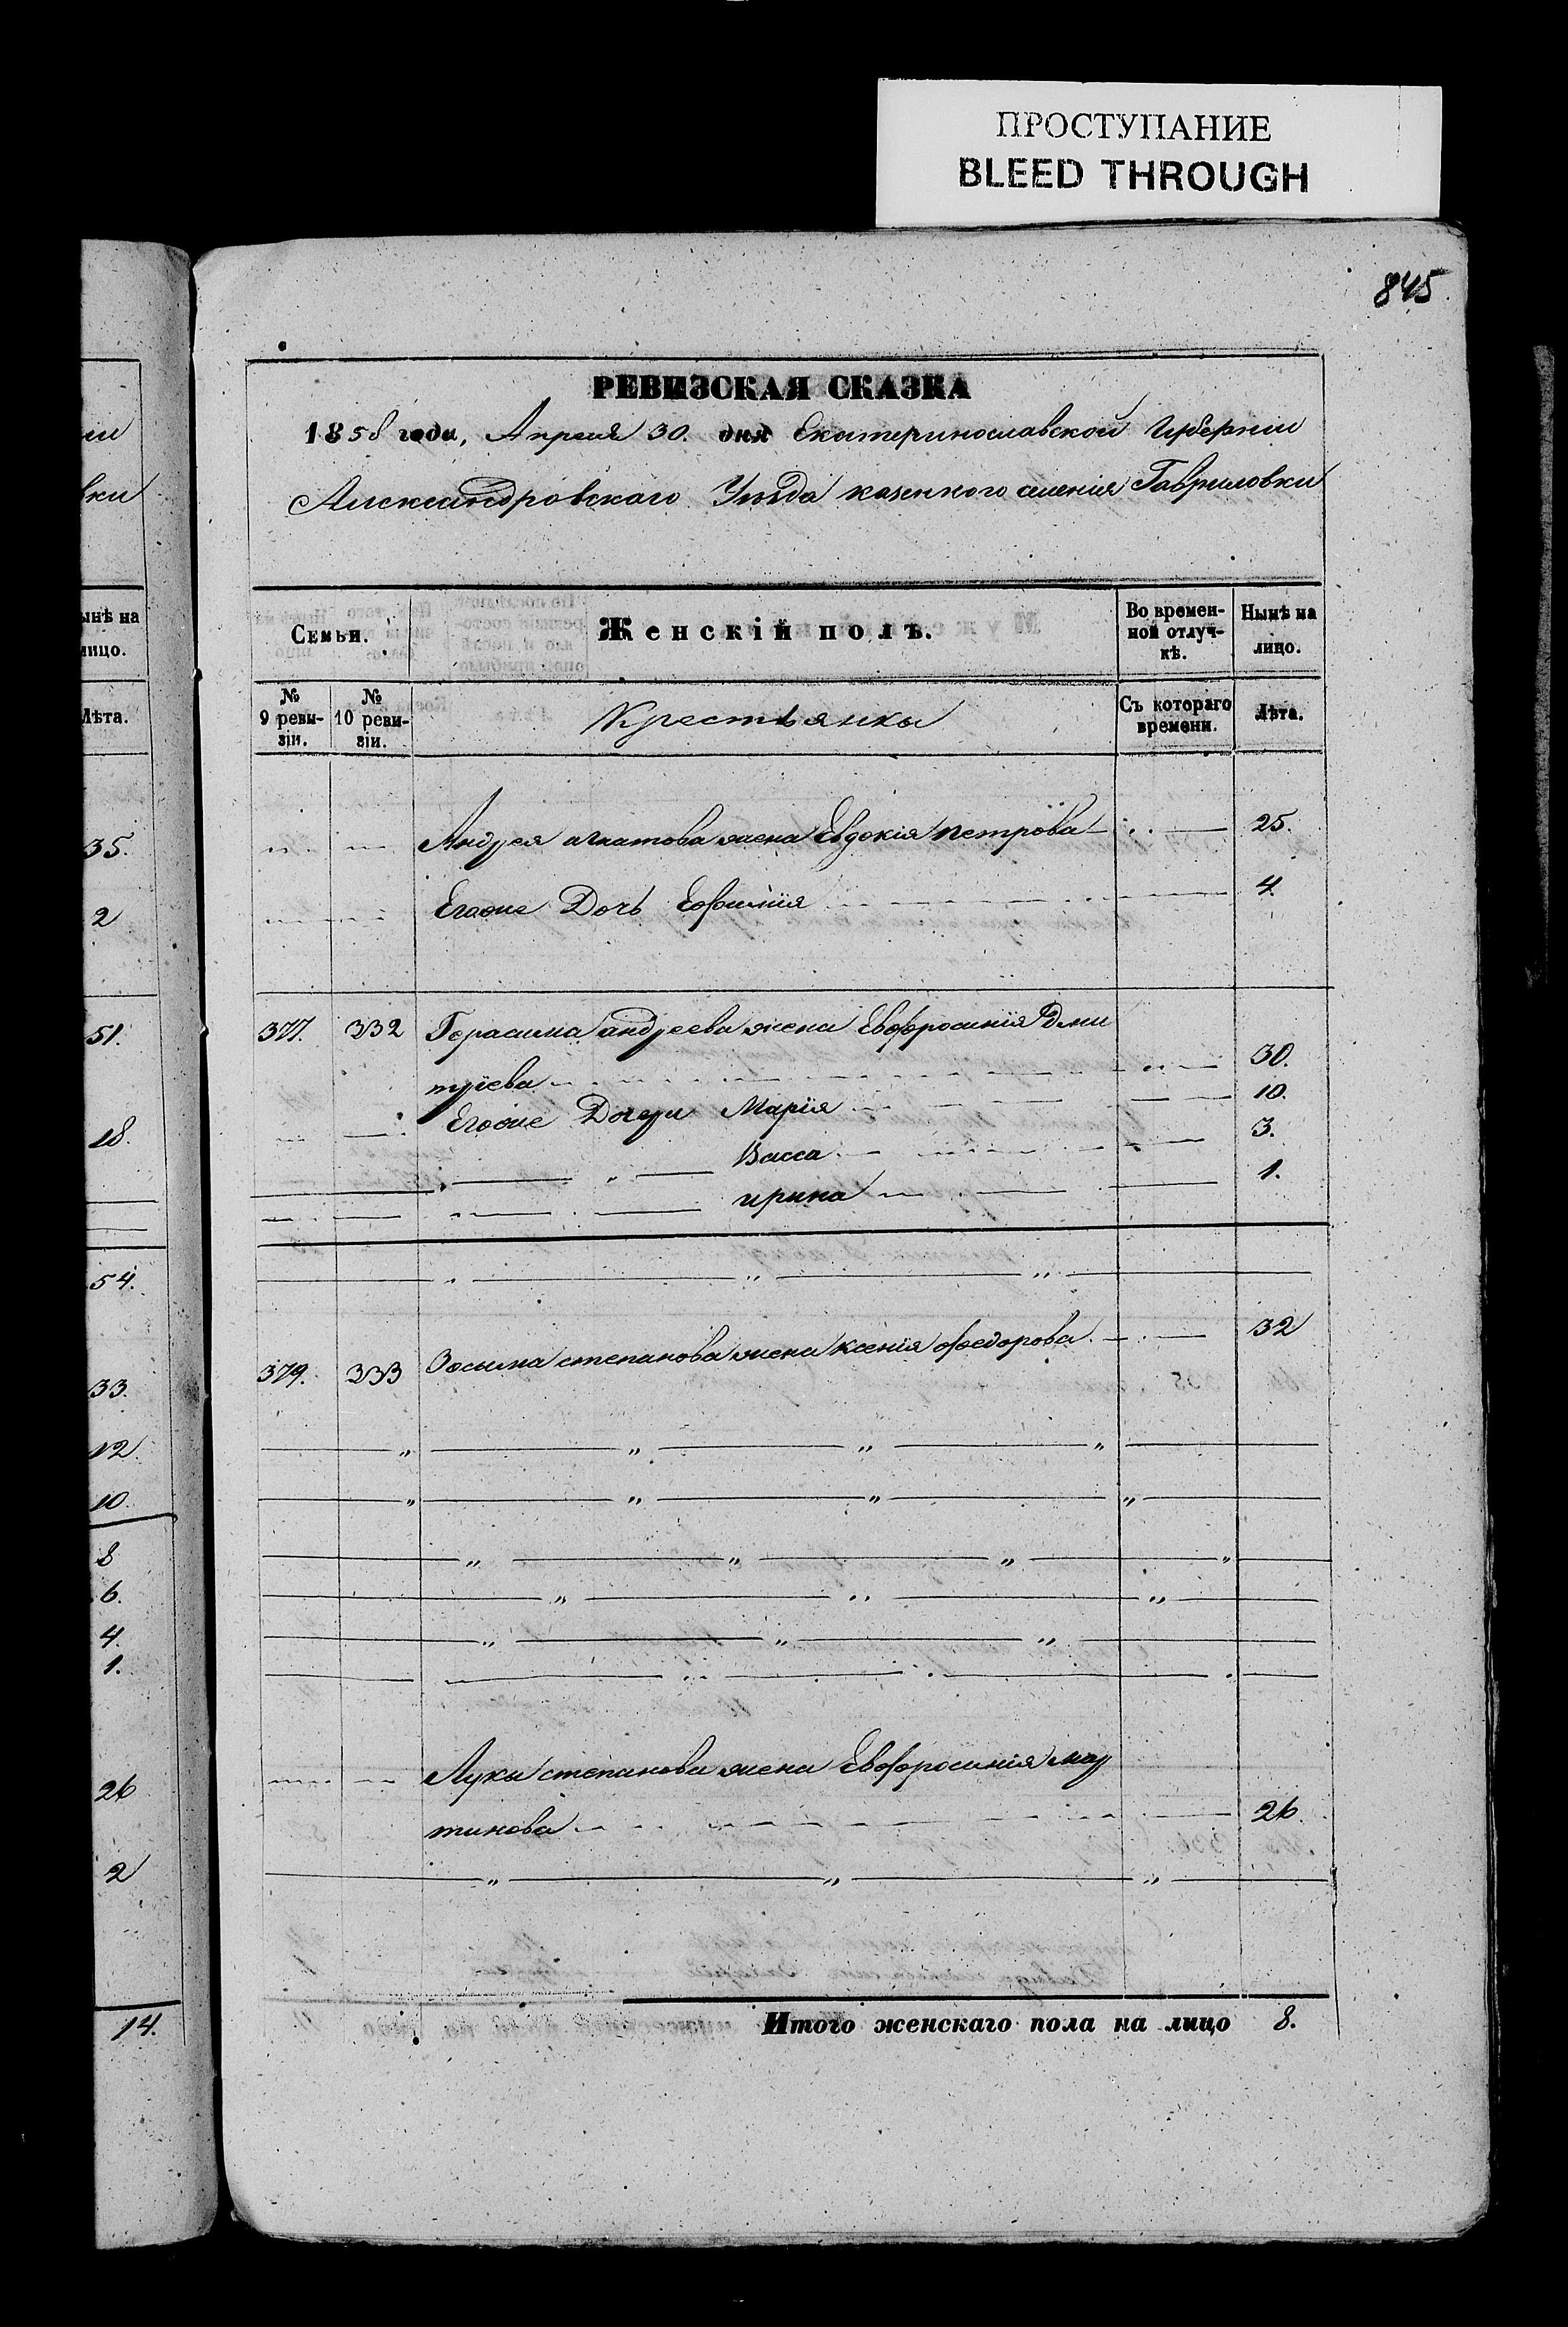 ПРОСТУПАНИЕ
BLEED THROUGH
845
РЕВИЗСКАЯ СКАЗКА
1858 года, Апреля 30. дня Екатеринославской Губернии
Александровскаго Уѣзда казенного селения Гавриловки
Семьи.
Женскій полъ.
Во времен-
ной отлуч-
кѣ.
Нынѣ на
лицо.
№
9 реви-
зіи.
№
10 реви-
зіи.
Крестьянки
Съ котораго
времени.
Лѣта.
Андрея игнатова жена Евдокія петрова 25.
Егоже Дочь Ефимія 4.
377. 332 Герасима андреева жена Евфросинія Дми
тріева 30.
Егоже Дочери Марія 10.
Васса 3.
ирина 1.
379. 333 Зосыма степанова жена ксенія федорова 32
Луки степанова жена Евфросинія мар
тинова 26.
Итого женскаго пола на лицо 8.
ынѣ на
лицо.
Лѣта.
35.
2
51.
18.
54.
33.
12.
10.
8
6.
4.
1.
26
2
14.